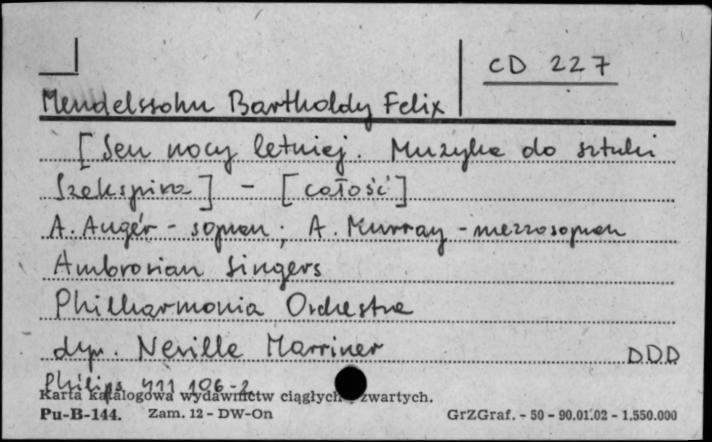 CD 227
Mendelssohn Bartholdy Felix
[Sen nocy letniej. Muzyka do sztuki
Szekspira] - [całość]
A. Augér - sopran; A. Murray - mezzosopran
Ambrosian Singers
Philharmonia Orchestra
dyr. Neville Marriner DDD
Philips 411 106-2
Karta katalogowa wydawnictw ciągłych zwartych.
Pu-B-144. Zam. 12 - DW-On GrZGraf. - 50 - 90.01.02 - 1.550.000